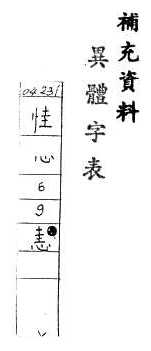 補充資料
異體字表
04231
恚
心
6
9
恚